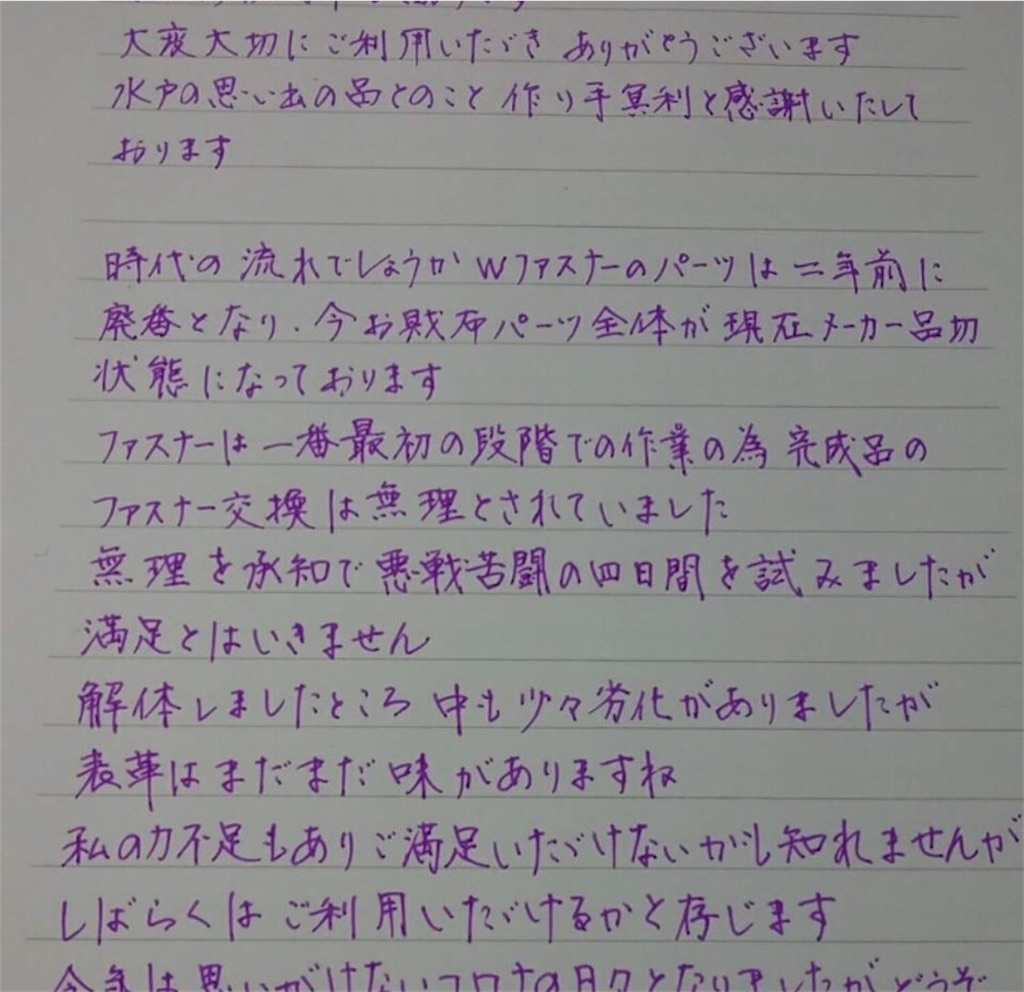 大変大切にご利用いただき ありがとうございます
水戸の思い出の品とのこと 作り手冥利と感謝いたして
おります
時代の流れでしょうか Wファスナーのパーツは二年前に
廃番となり、今お財布パーツ全体が現在メーカー品切
状態になっております
ファスナーは一番最初の段階での作業の為 完成品の
ファスナー交換は無理とされていました
無理を承知で悪戦苦闘の四日間を試みましたが
満足とはいきません
解体しましたところ 中も少々劣化がありましたが
表革はまだまだ味がありますね
私の力不足もありご満足いただけないかも知れませんが
しばらくはご利用いただけるかと存じます
今年は思いがけないコロナの日々となりましたがどうぞ